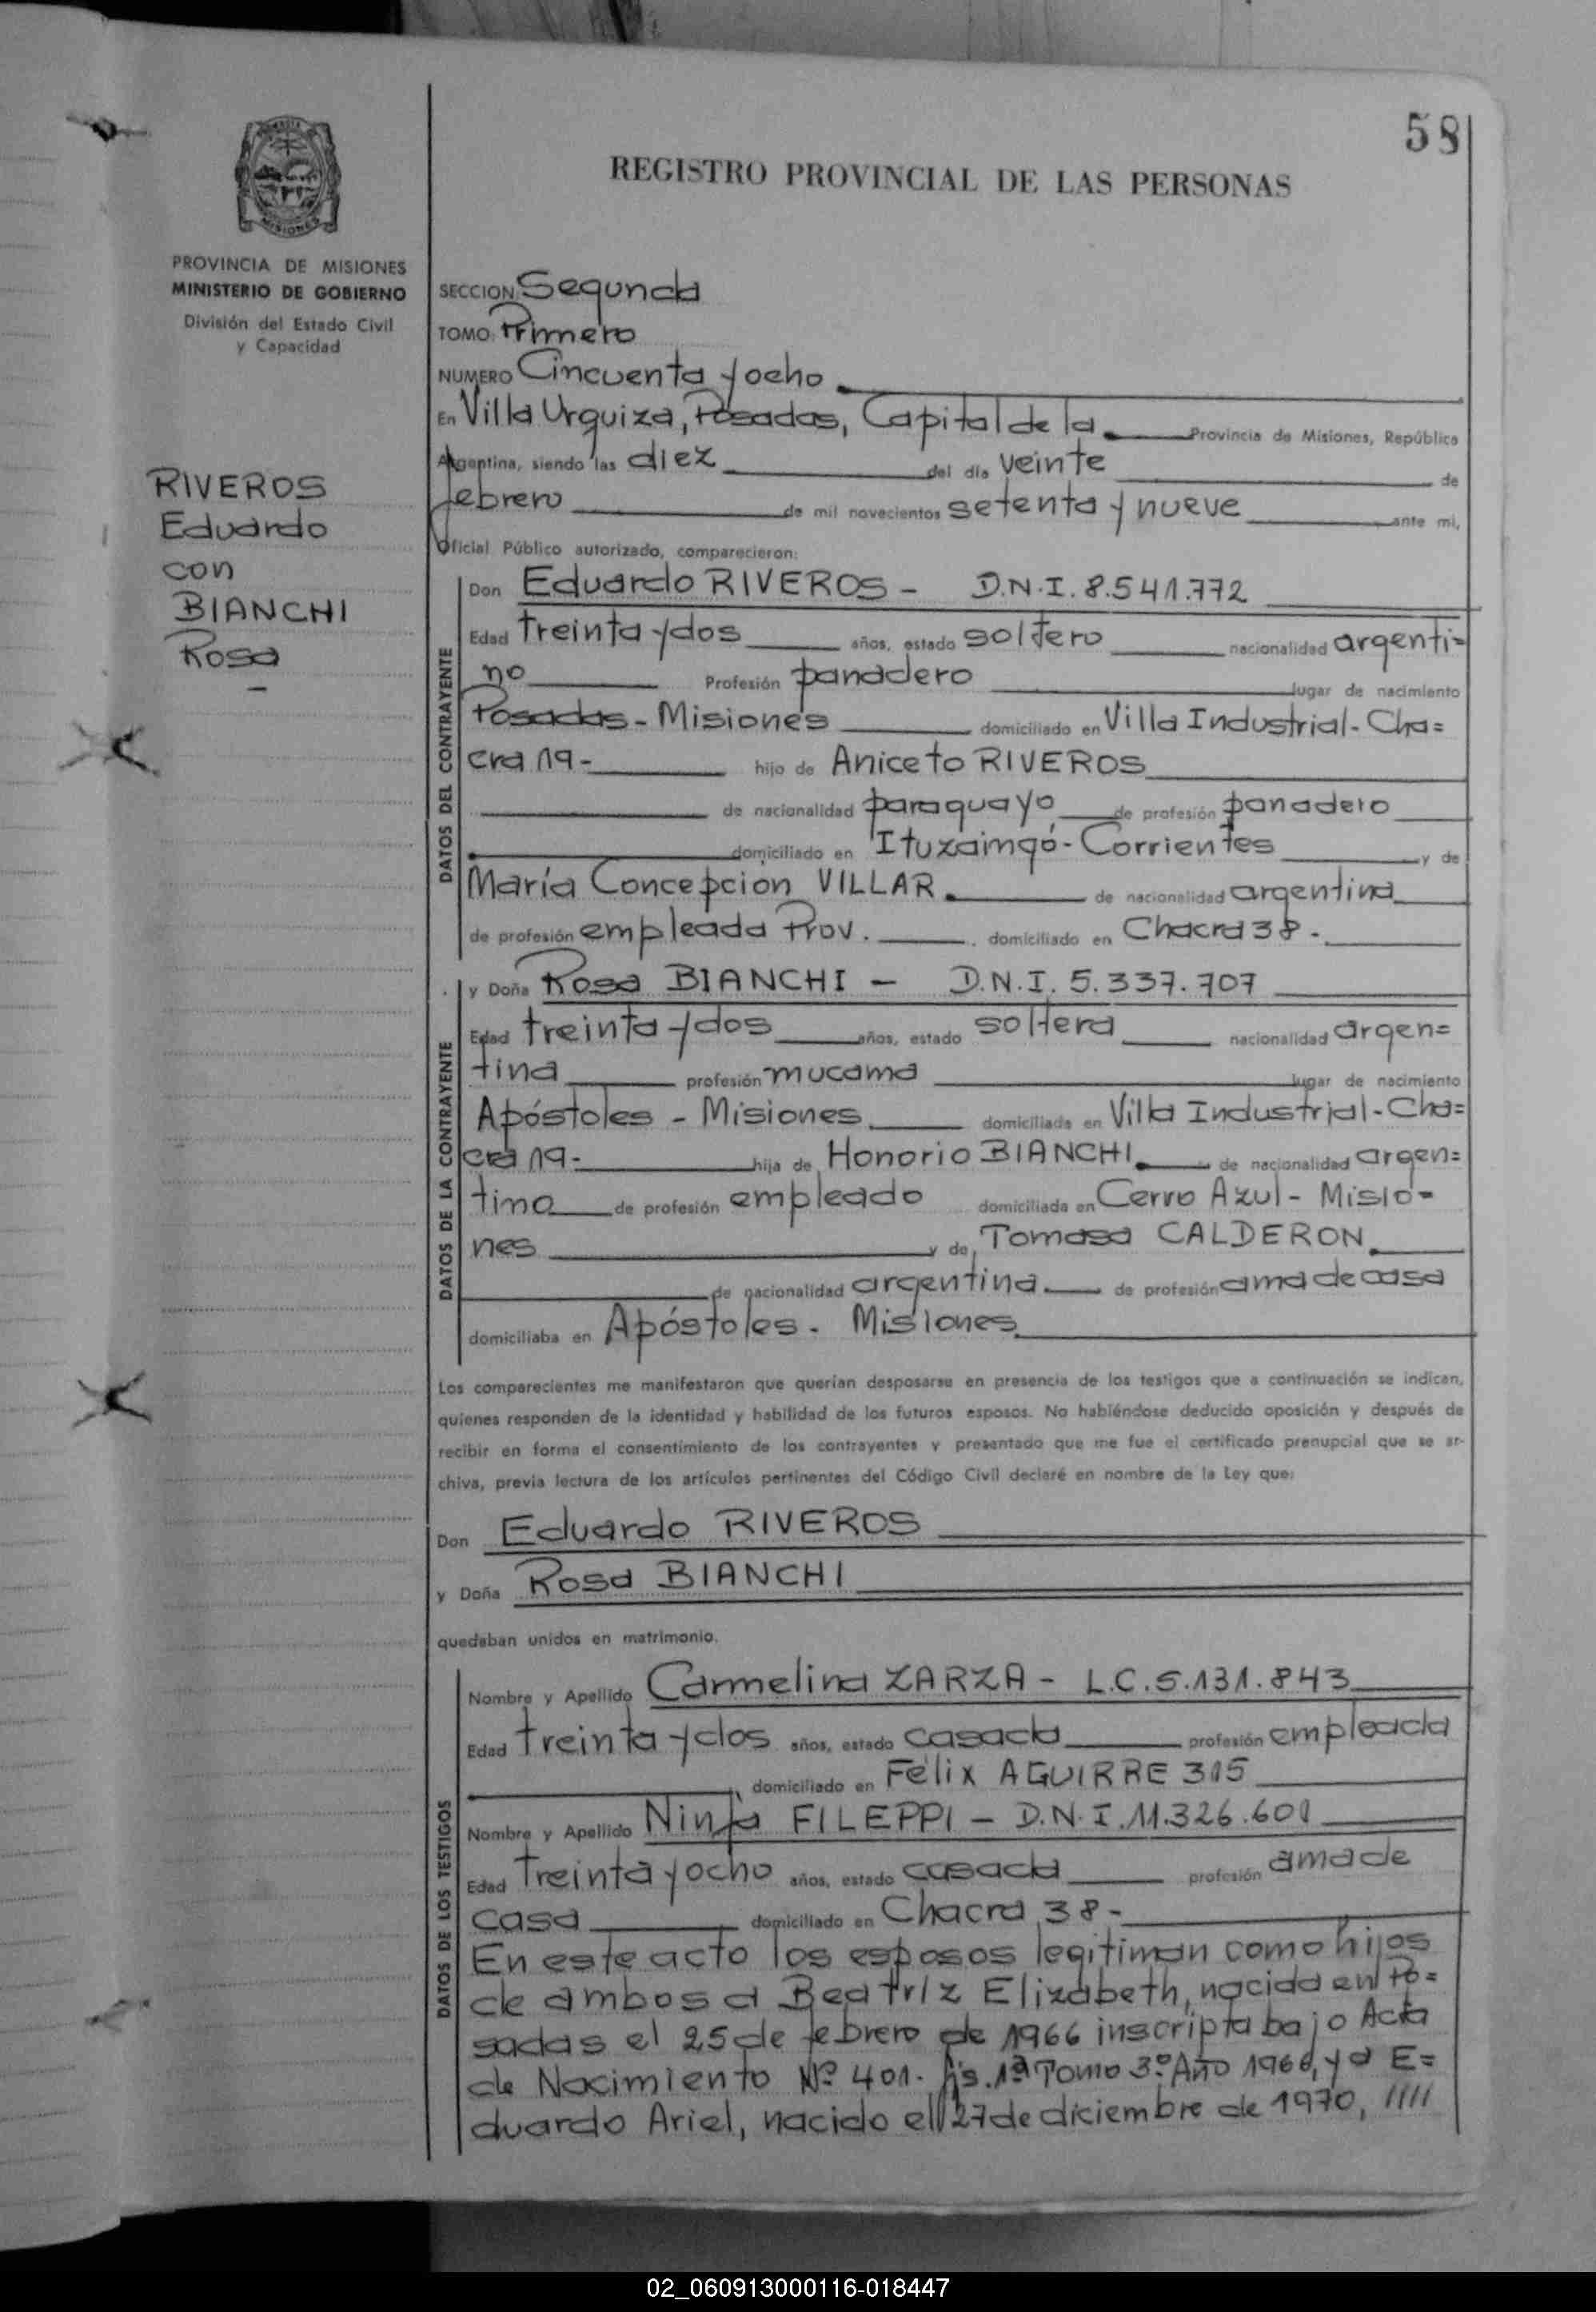 58
REGISTRO PROVINCIAL DE LAS PERSONAS
MISIONES
PROVINCIA DE MISIONES
MINISTERIO DE GOBIERNO
División del Estado Civil
y Capacidad
RIVEROS
Eduardo
con
BIANCHI
Rosa
SECCION Segunda
TOMO: Primero
NUMERO Cincuenta y ocho
En Villa Urquiza, Posadas, Capital de la Provincia de Misiones, República
Argentina, siendo las diez del día veinte de
febrero de mil novecientos setenta y nueve ante mi,
Oficial Público autorizado, comparecieron:
DATOS DEL CONTRAYENTE
Don Eduardo RIVEROS - D.N.I. 8.541.772
Edad treinta y dos años, estado soltero nacionalidad argenti=
no Profesión panadero lugar de nacimiento
Posadas - Misiones domiciliado en Villa Industrial - Cha=
cra 19 - hijo de Aniceto RIVEROS
de nacionalidad paraguayo de profesión panadero
domiciliado en Ituzaingó - Corrientes y de
María Concepción VILLAR de nacionalidad argentina
de profesión empleada Prov. domiciliado en Chacra 38 -
DATOS DE LA CONTRAYENTE
y Doña Rosa BIANCHI - D.N.I. 5.337.707
Edad treinta y dos años, estado soltera nacionalidad argen=
tina profesión mucama lugar de nacimiento
Apóstoles - Misiones domiciliada en Villa Industrial - Cha=
cra 19 - hija de Honorio BIANCHI de nacionalidad argen=
tino de profesión empleado domiciliada en Cerro Azul - Misio=
nes y de Tomasa CALDERON
de nacionalidad argentina de profesión ama de casa
domiciliaba en Apóstoles - Misiones
Los comparecientes me manifestaron que querían desposarse en presencia de los testigos que a continuación se indican,
quienes responden de la identidad y habilidad de los futuros esposos. No habiéndose deducido oposición y después de
recibir en forma el consentimiento de los contrayentes y presentado que me fue el certificado prenupcial que se ar-
chiva, previa lectura de los artículos pertinentes del Código Civil declaré en nombre de la Ley que:
Don Eduardo RIVEROS
y Doña Rosa BIANCHI
quedaban unidos en matrimonio.
DATOS DE LOS TESTIGOS
Nombre y Apellido Carmelina ZARZA - L.C. 5.131.843
Edad treinta y dos años, estado casada profesión empleada
domiciliado en Félix AGUIRRE 315
Nombre y Apellido FILEPPI - D.N.I. 11.326.601
Edad Treinta y ocho años, estado casada profesión ama de
casa domiciliado en Chacra 38 -
En este acto los esposos legitiman como hijos
de ambos a Beatriz Elizabeth, nacida en Po=
sadas el 25 de febrero de 1966 inscripta bajo Acta
de Nacimiento Nº 401. 1ª Tomo 3º Año 1966, y a E=
duardo Ariel, nacido el 27 de diciembre de 1970, ////
02_060913000116-018447